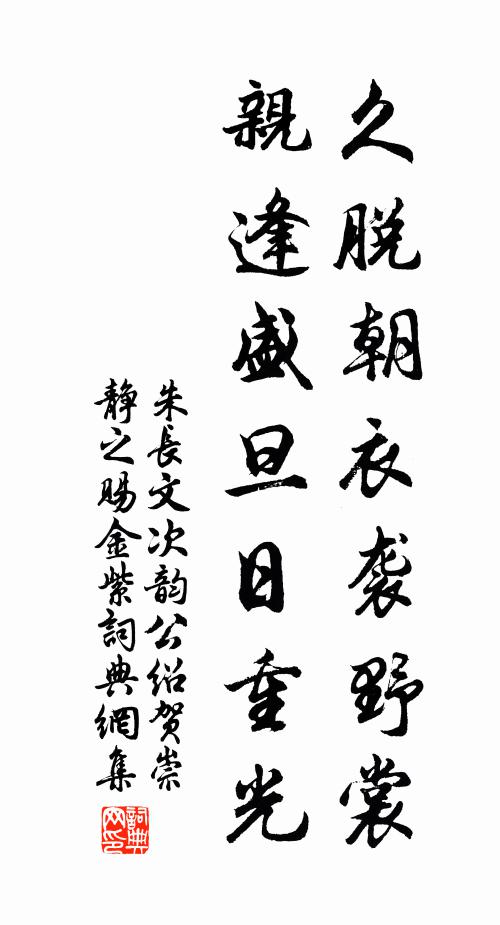 久脱朝衣袭野裳
親逢盛旦日重光
朱長文次韵公绍贺崇
静之賜金紫詞典網集
詞典网印